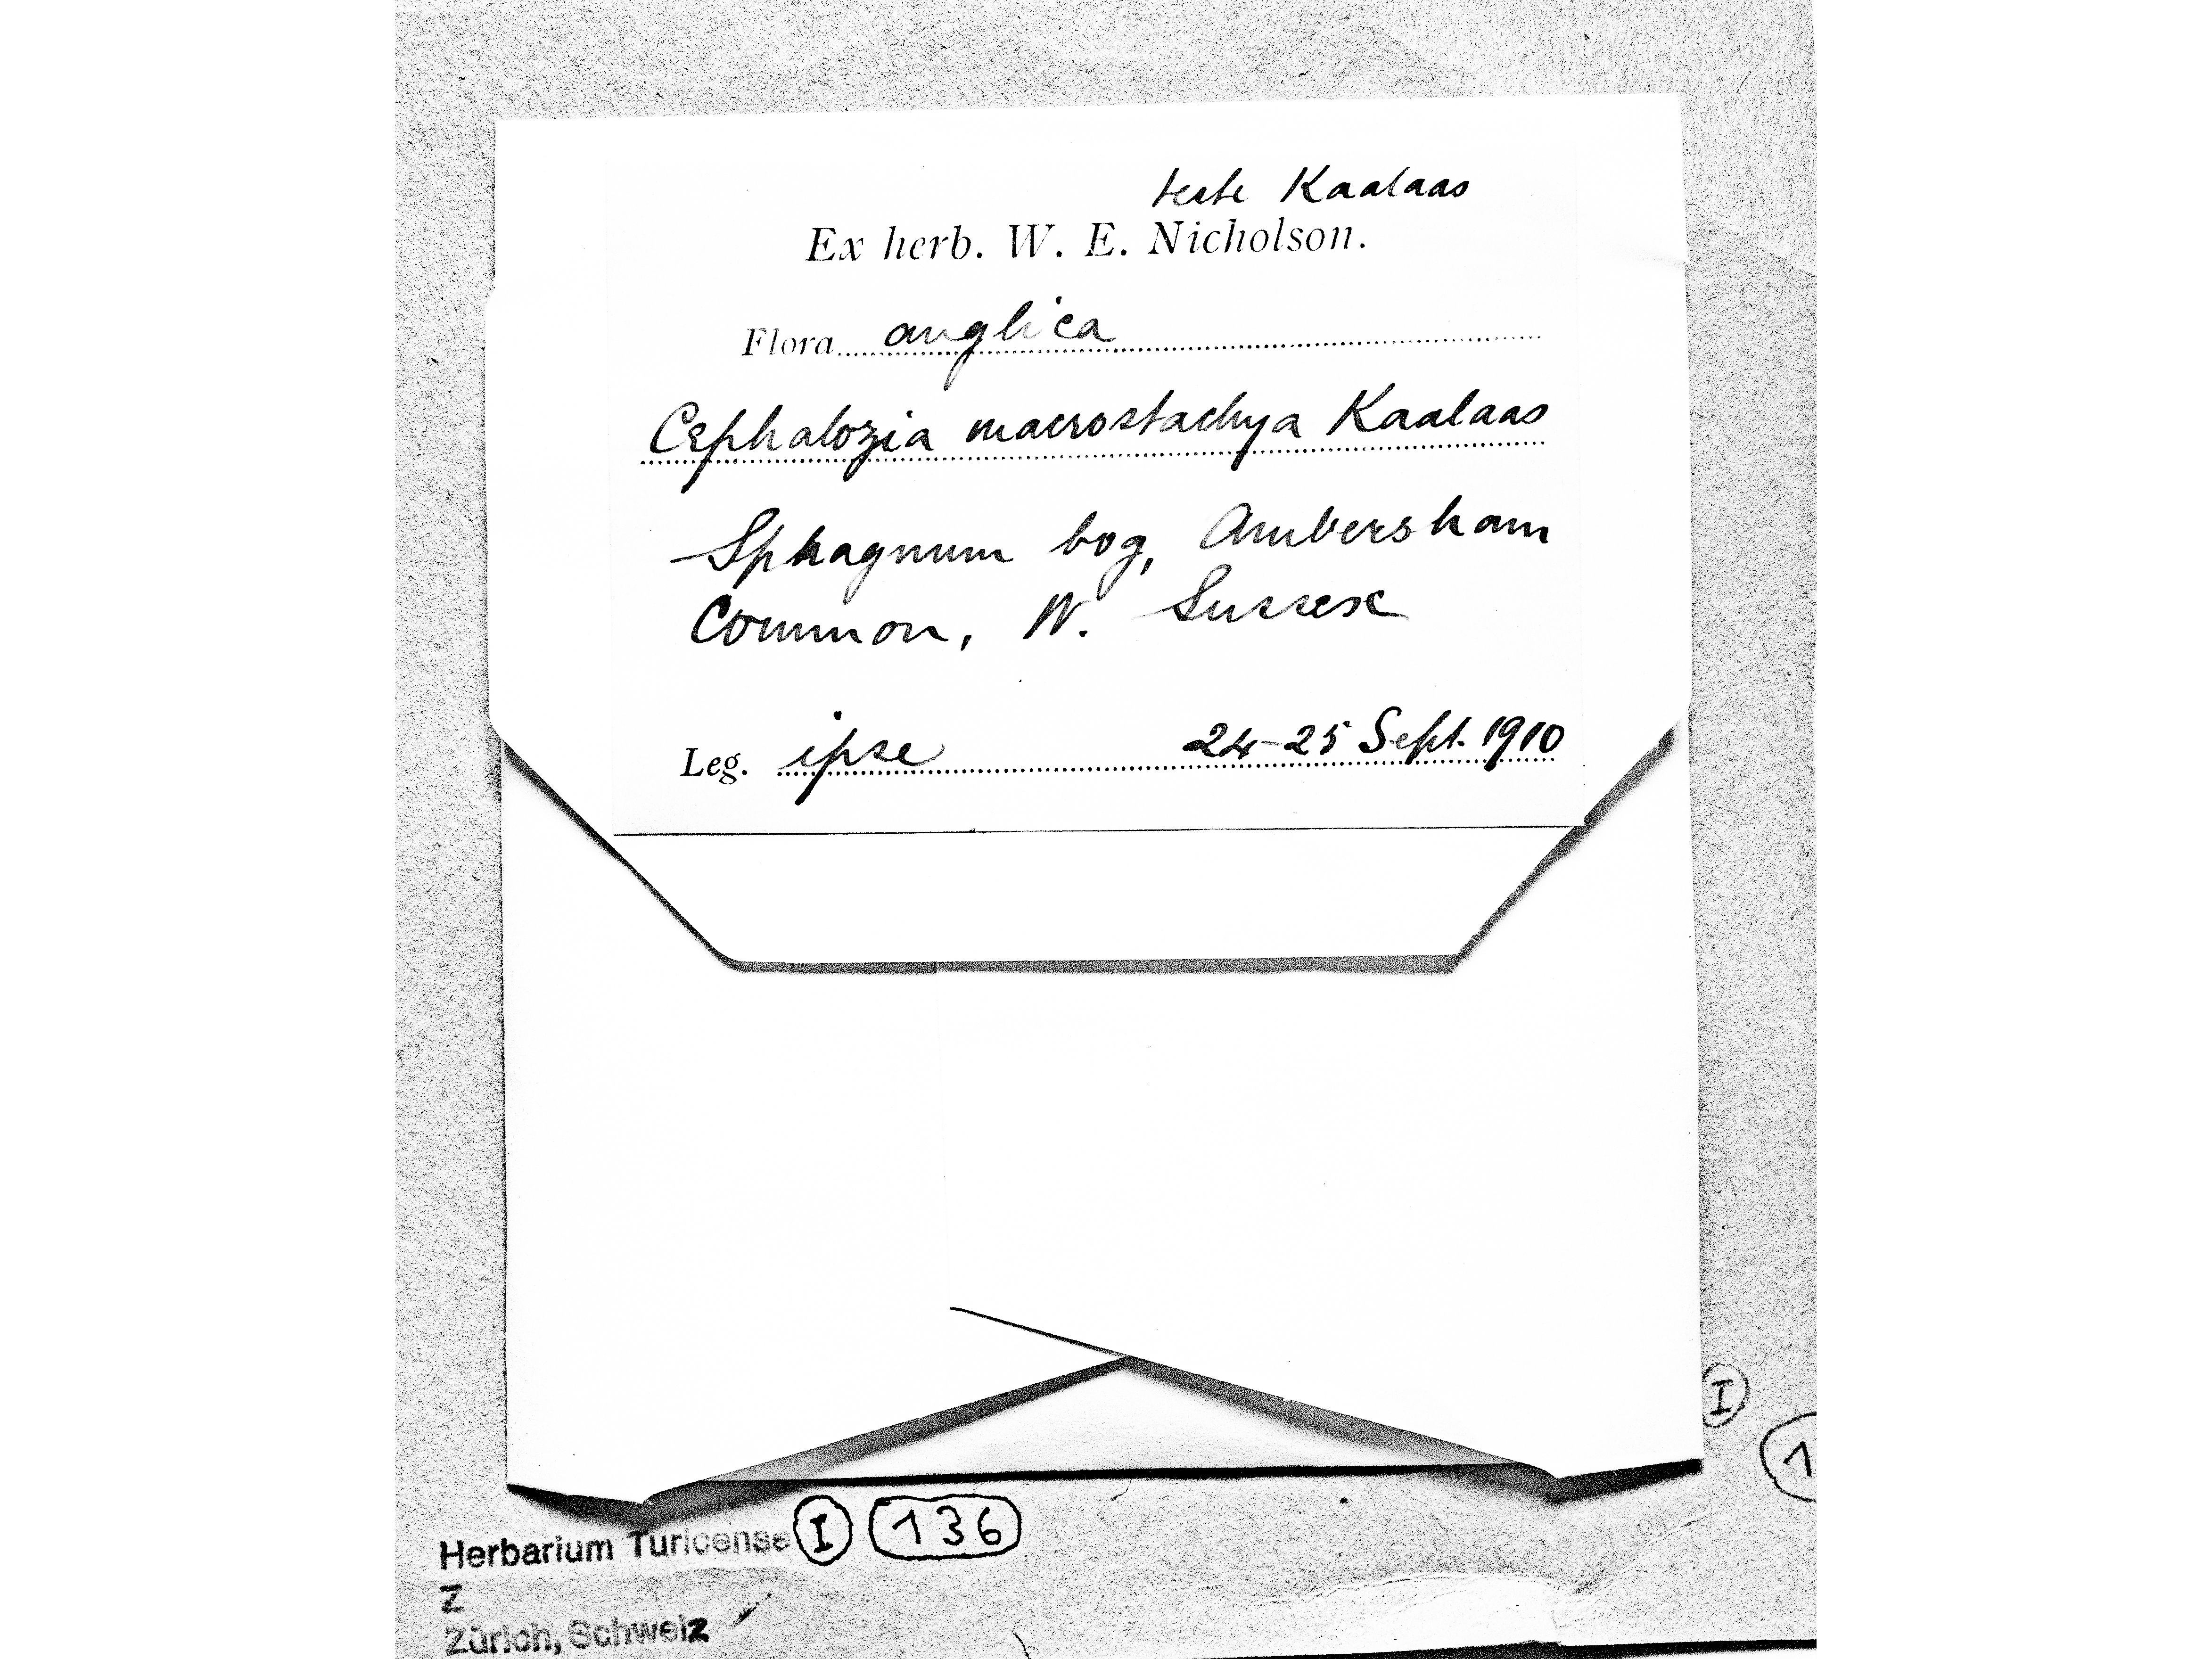 teste Kaalaas
Ex herb. W. E. Nicholson.
Flora anglica
Cephalozia macrostachya Kaalaas
Sphagnum bog, Ambersham
Common, W. Sussex
Leg. ipse 24-25 Sept. 1910
I
1
Herbarium Turicense I 136
Z
Zürich, Schweiz